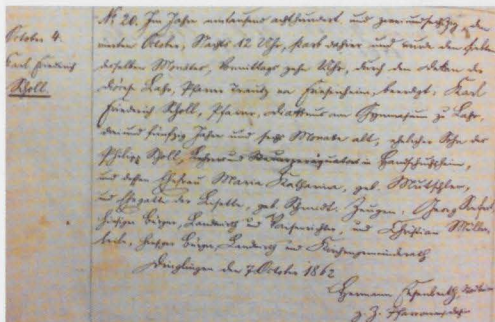 October 4.
Carl Friedrich
Scholl.
No 20. Im Jahre eintausend achthundert und zwei und sechzig den
vierten October, Nachts 12 Uhr, starb dahier und wurde den siebten
desselben Monates, Vormittags zehn Uhr, durch den Dekan der
Diöcese Lahr, Pfarrer in Friesenheim, beerdigt: Karl
Friedrich Scholl, Pfarrer, am Gymnasium zu Lahr,
drei und fünfzig Jahre und sechs Monate alt, ehelicher Sohn des
Philipp Scholl, in Handschuhsheim,
und dessen Ehefrau Maria Katharina, geb. Mutschler,
und Ehegatte der Lisette, geb. Schmidt. Zeugen: Georg
hiesiger Bürger, Landwirth und und Christian
hiesiger Bürger, Landwirth und Kirchengemeinderath
Dinglingen den 7. October 1862
Hermann
z. Z.